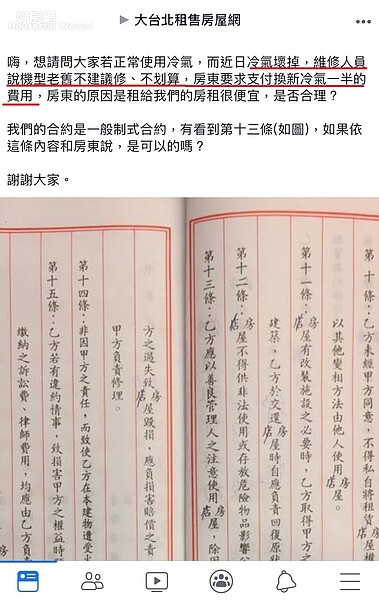 大台北租售房屋網
嗨，想請問大家若正常使用冷氣，而近日冷氣壞掉，維修人員
說機型老舊不建議修、不划算，房東要求支付換新冷氣一半的
費用，房東的原因是租給我們的房租很便宜，是否合理？
我們的合約是一般制式合約，有看到第十三條(如圖)，如果依
這條內容和房東說，是可以的嗎？
謝謝大家。
第十條：乙方未經甲方同意，不得私自將租賃房屋權
以其他變相方法由他人使用房店屋。
第十一條：房店屋有改裝施設之必要時，乙方取得甲方之
建築，乙方於交還房店屋時自應負責回復原狀
第十二條：房店屋不得供非法使用或存放危險物品影響公
第十三條：乙方應以善良管理人之注意使用房店屋，除因
方之過失致房店屋毀損，應負損害賠償之責
甲方負責修理。
第十四條：非因甲方之責任，而致使乙方在本建物遭受
第十五條：乙方若有違約情事，致損害甲方之權益時
繳納之訴訟費、律師費用，均應由乙方負責